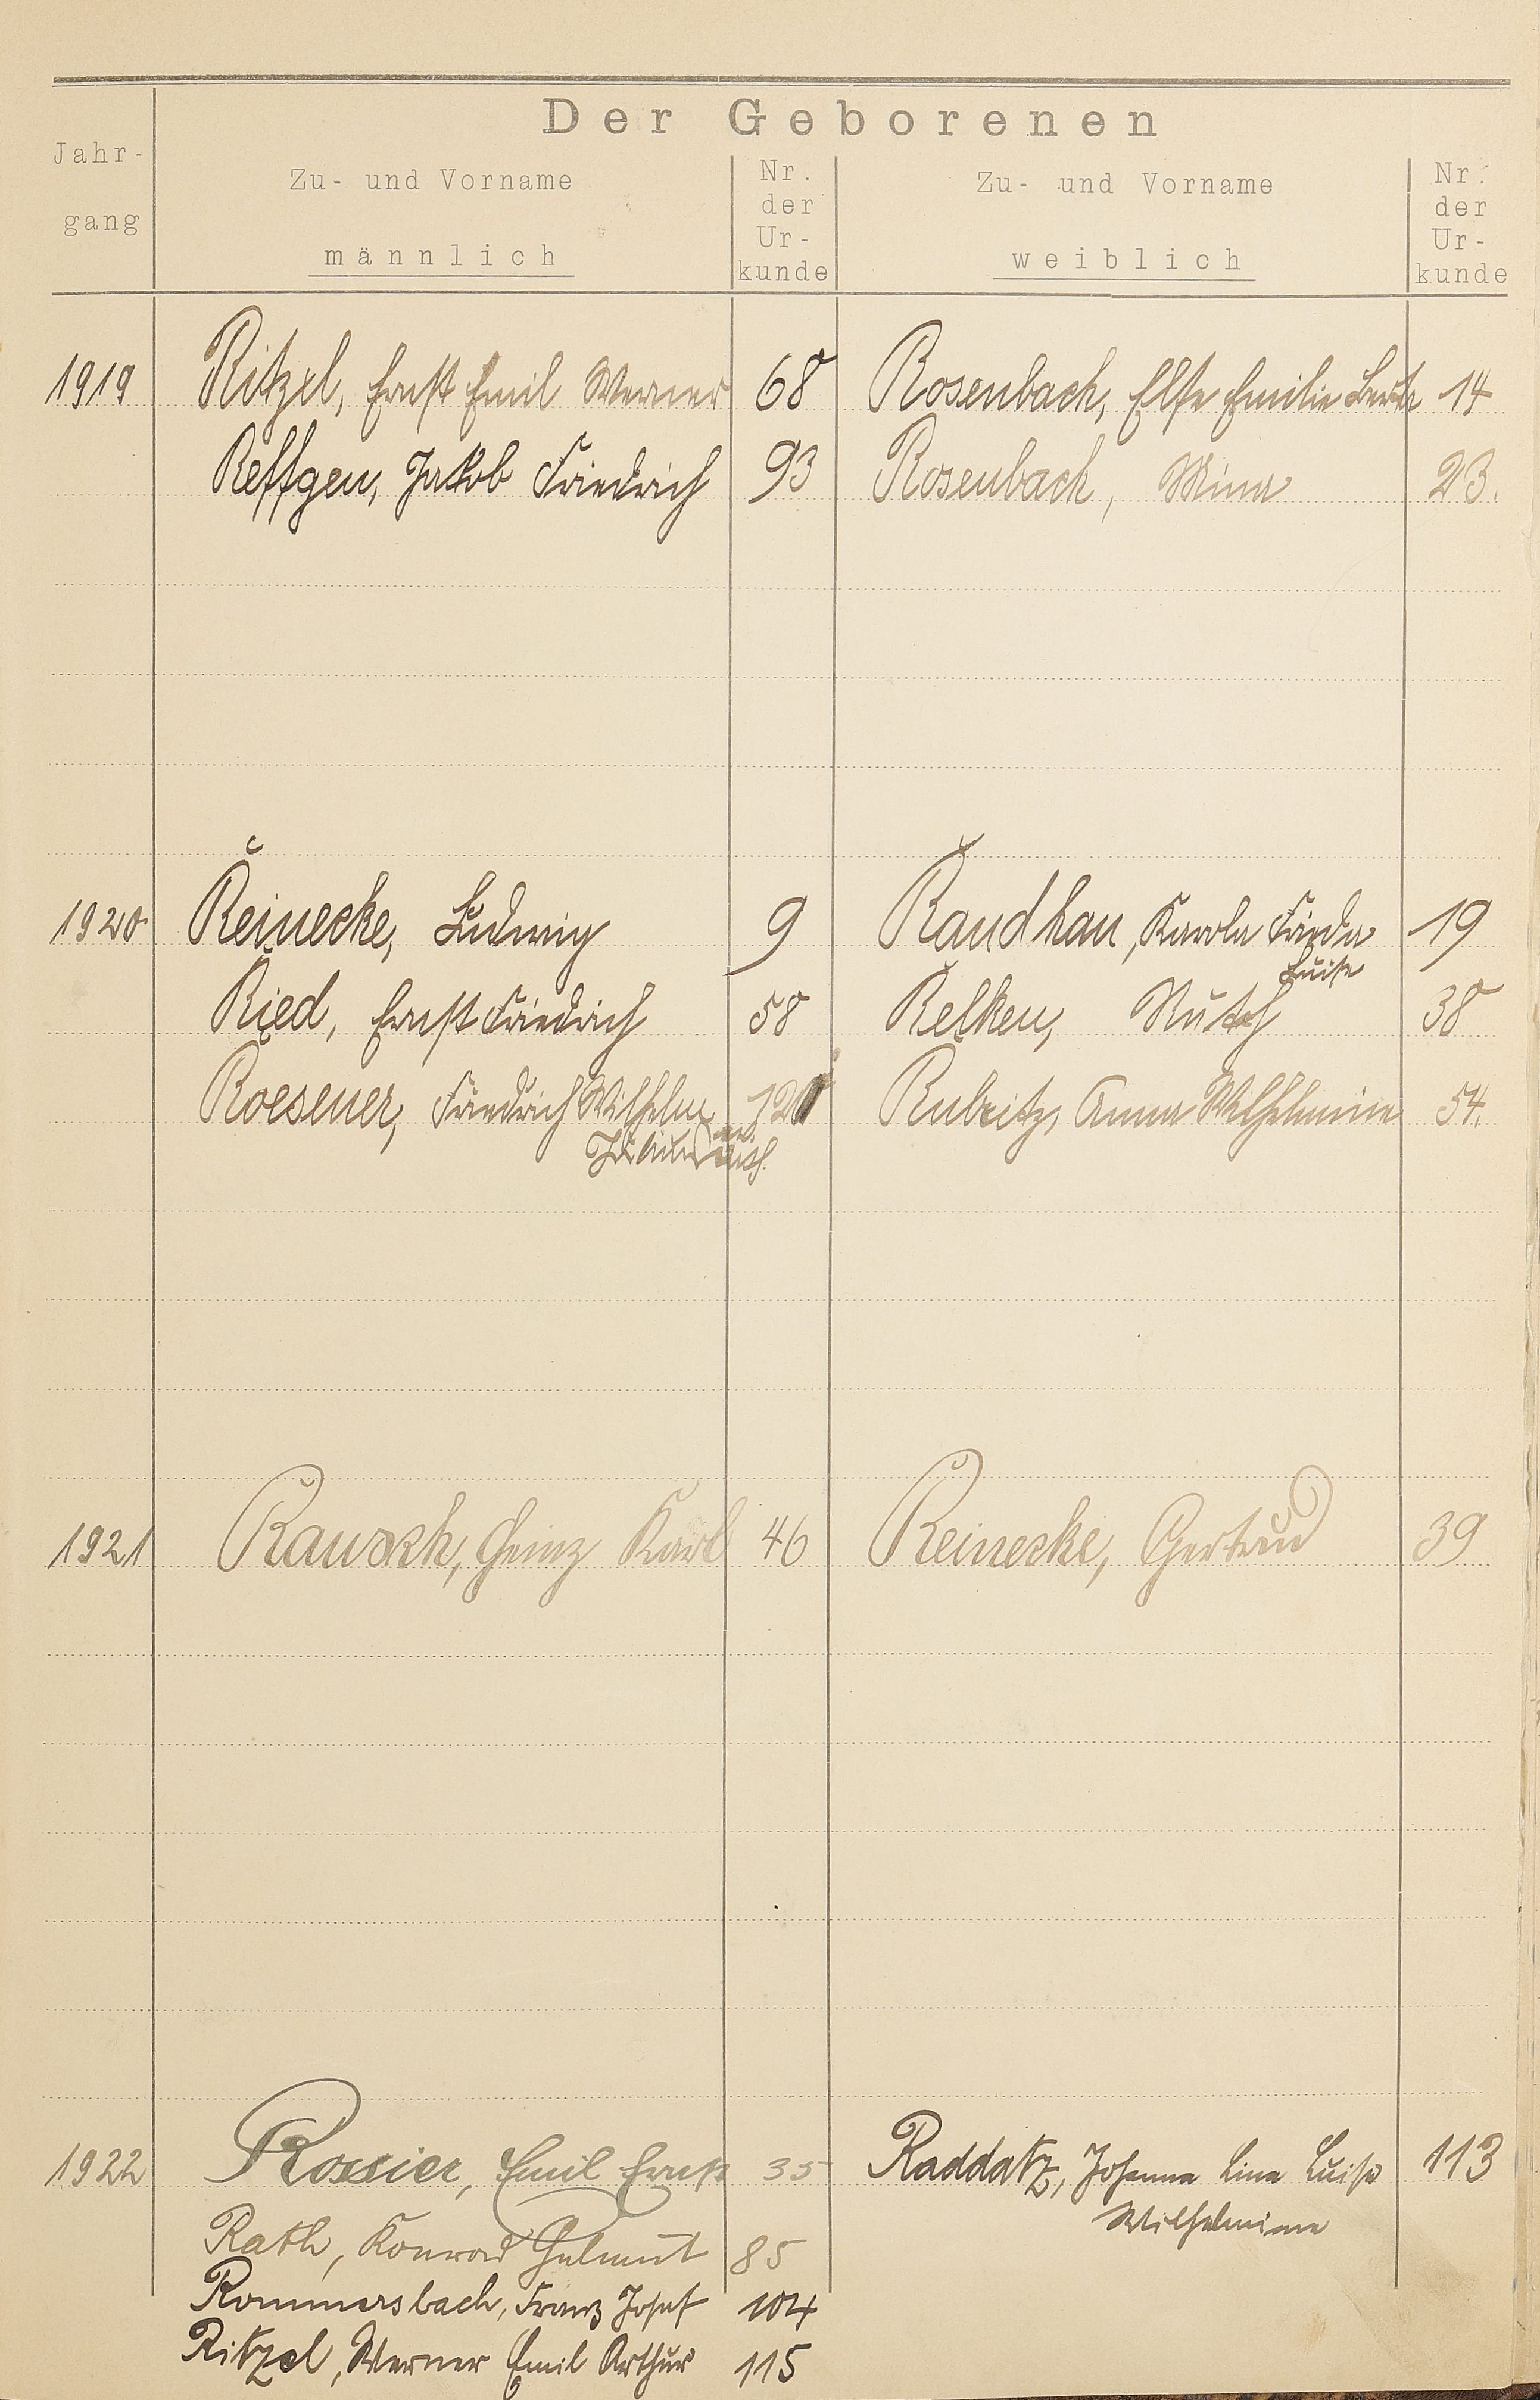 Der Geborenen
Jahr-
gang
Zu- und Vorname
männlich
Nr.
der
Ur-
kunde
Zu- und Vorname
weiblich
Nr.
der
Ur-
kunde
1919 Ritzel, Ernst Emil Werner 68 Rosenbach, Else Emilie Berta 14
Reffgen, Jakob Friedrich 93 Rosenbach, Mina 23.
1920 Reinecke, Ludwig 9 Raudhau, Karola Frieda 19
Luise
Ried, Ernst Friedrich 58 Relken, Ruth 38
Roesener, Friedrich Wilhelm 120 Rubritz, Anna Wilhelmine 54.
1921 Rausch, Heinz Karl 46 Reinecke, Gertrud 39
1922 Rossier, Emil Ernst 35 Raddatz, Johanna Lina Luise 113
Wilhelmine
Rath, Konrad Helmut 85
Rommersbach, Franz Josef 104
Ritzel, Werner Emil Arthur 115